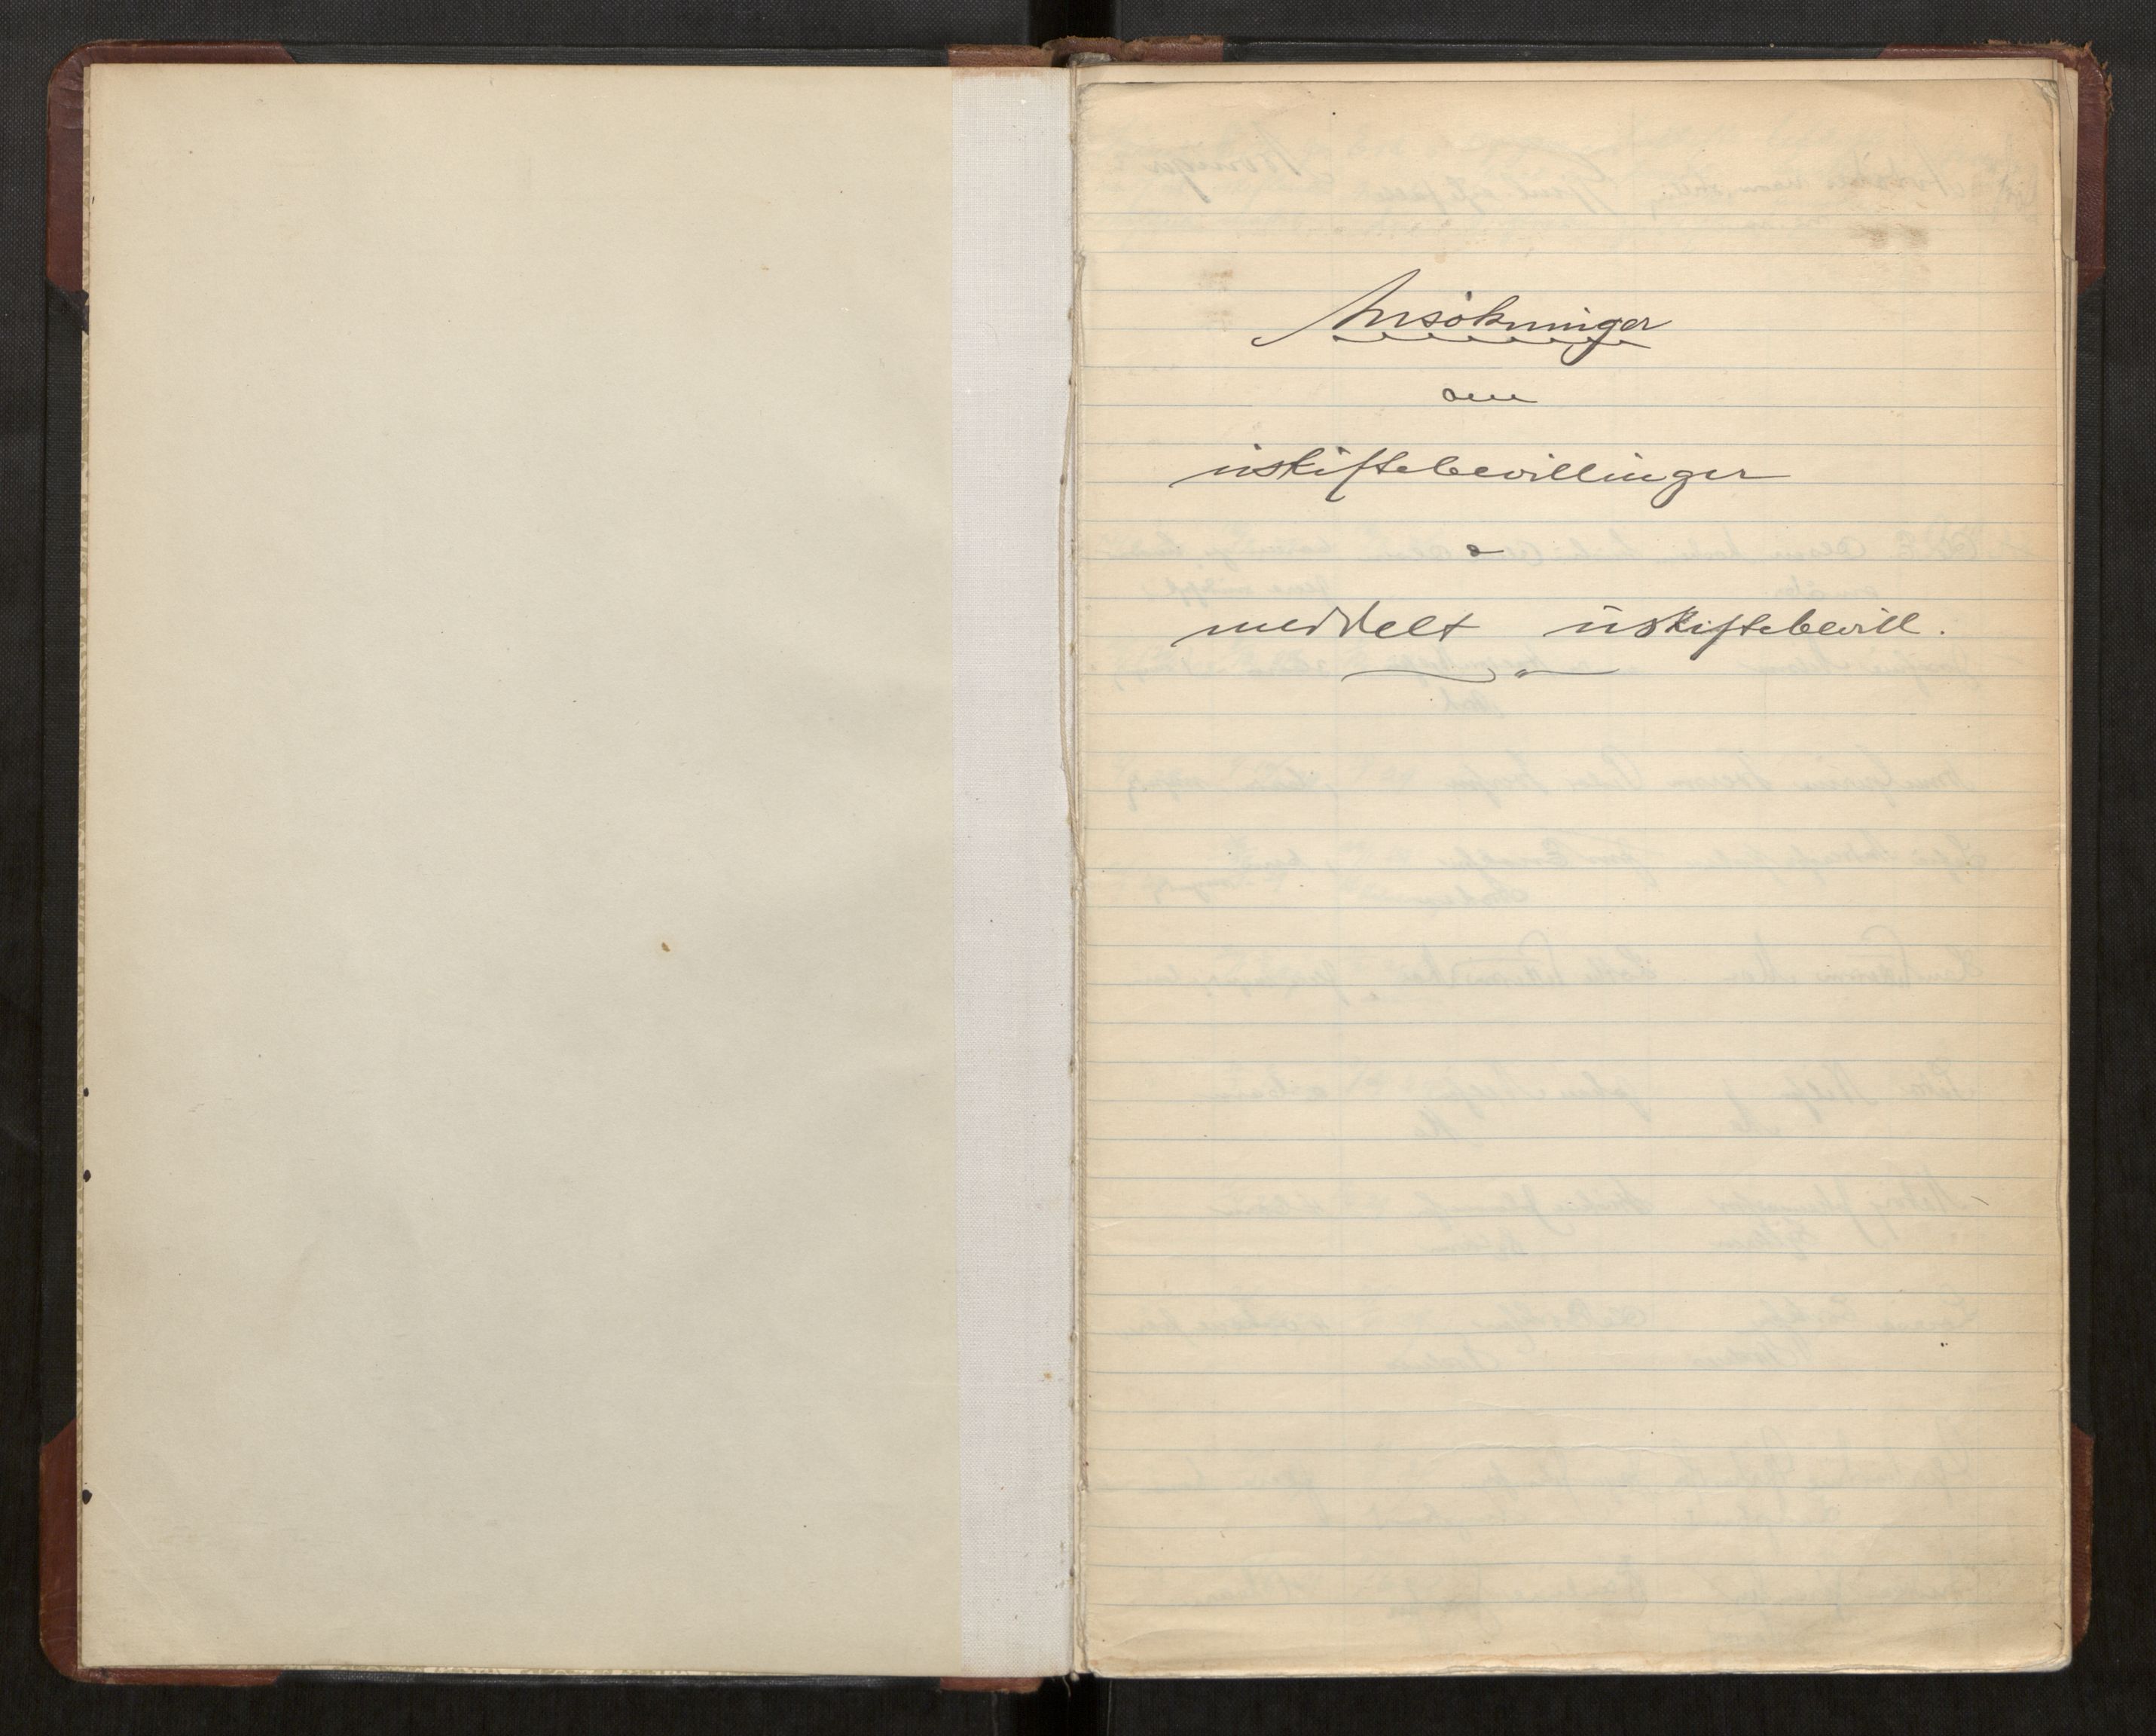 Ansökninger
om
uskiftebevillinger
&
meddelt uskiftebevill.